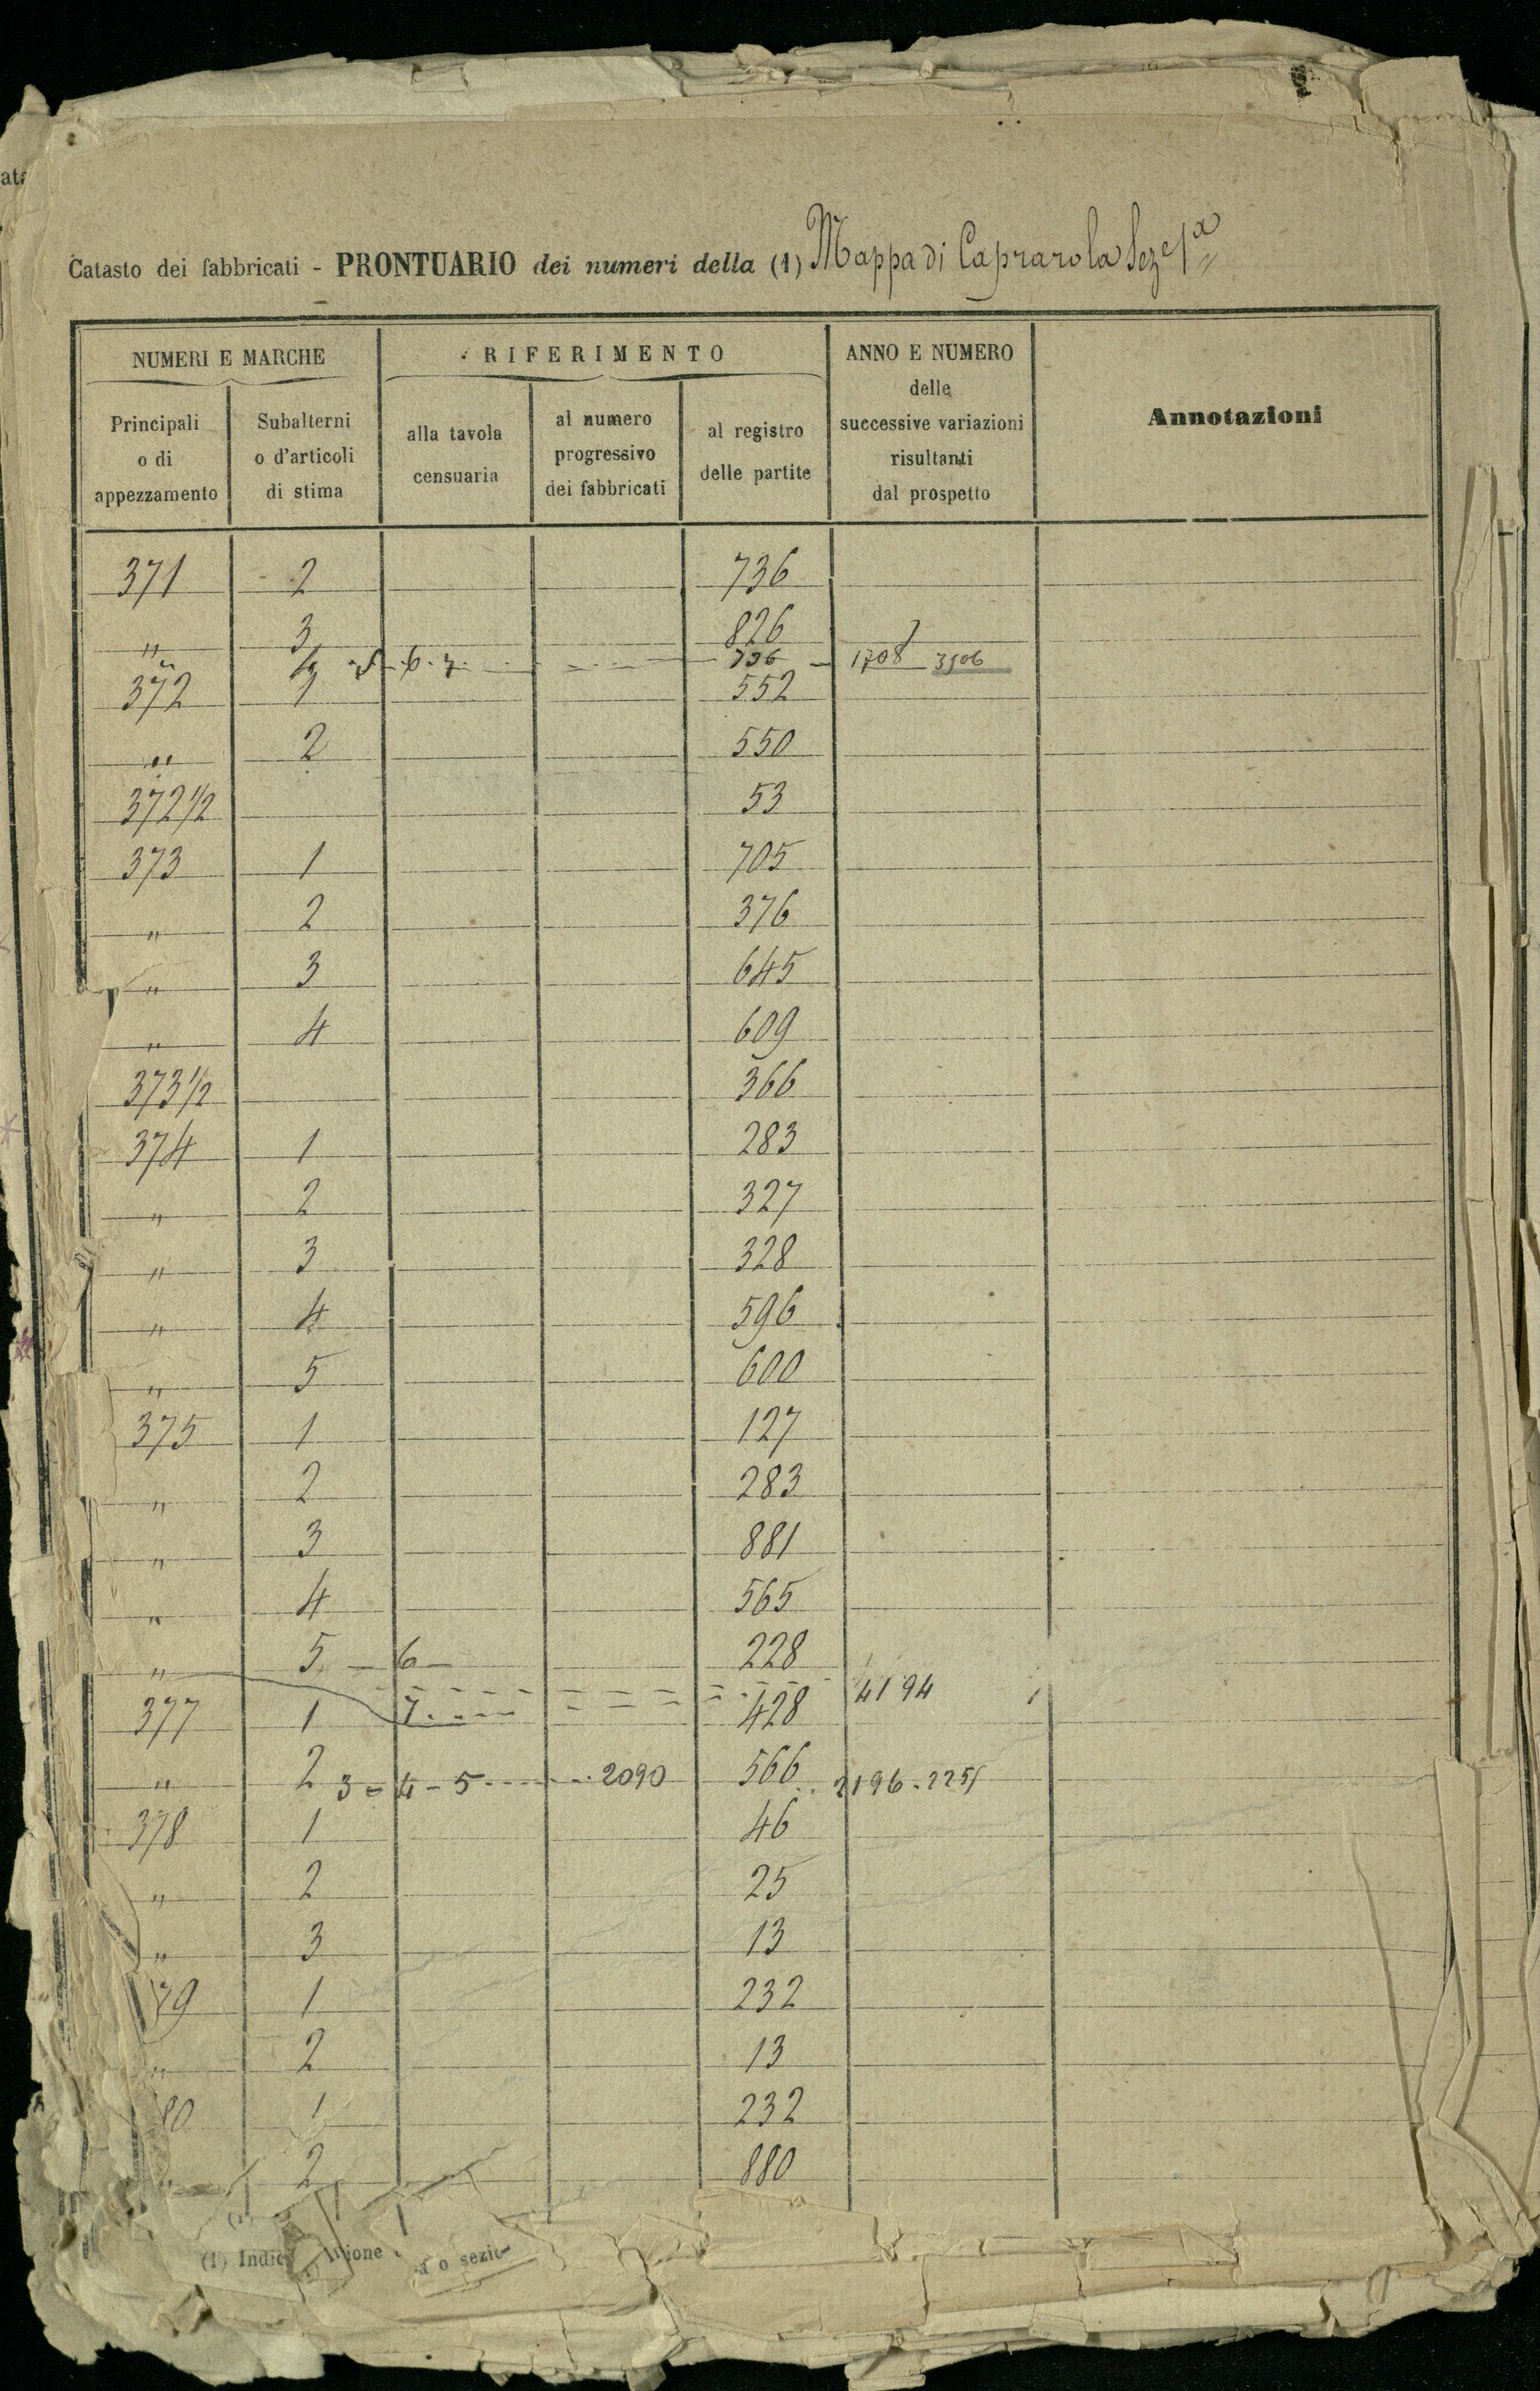 Catasto dei fabbricati - PRONTUARIO dei numeri della (1) Mappa di Caprarola Sez.e 1a
NUMERI E MARCHE
RIFERIMENTO
ANNO E NUMERO
delle
successive variazioni
risultanti
dal prospetto
Annotazioni
Principali
o di
appezzamento
Subalterni
o d'articoli
di stima
alla tavola
censuaria
al numero
progressivo
dei fabbricati
al registro
delle partite
371 2 736
" 3 826
" 5-6-7 736 - 1708 3506
372 1 552
" 2 550
372 1/2 53
373 1 705
" 2 376
" 3 645
" 4 609
373 1/2 366
374 1 283
" 2 327
" 3 328
" 4 596
" 5 600
375 1 127
" 2 283
" 3 881
" 4 565
" 5 - 6 - 228
7 4194
377 1 428
" 2 566
3 = 4 - 5 2090 2196 - 2251
378 1 46
" 2 25
" 3 13
79 1 232
" 2 13
80 1 232
" 2 880
(1) Indic
o sezio